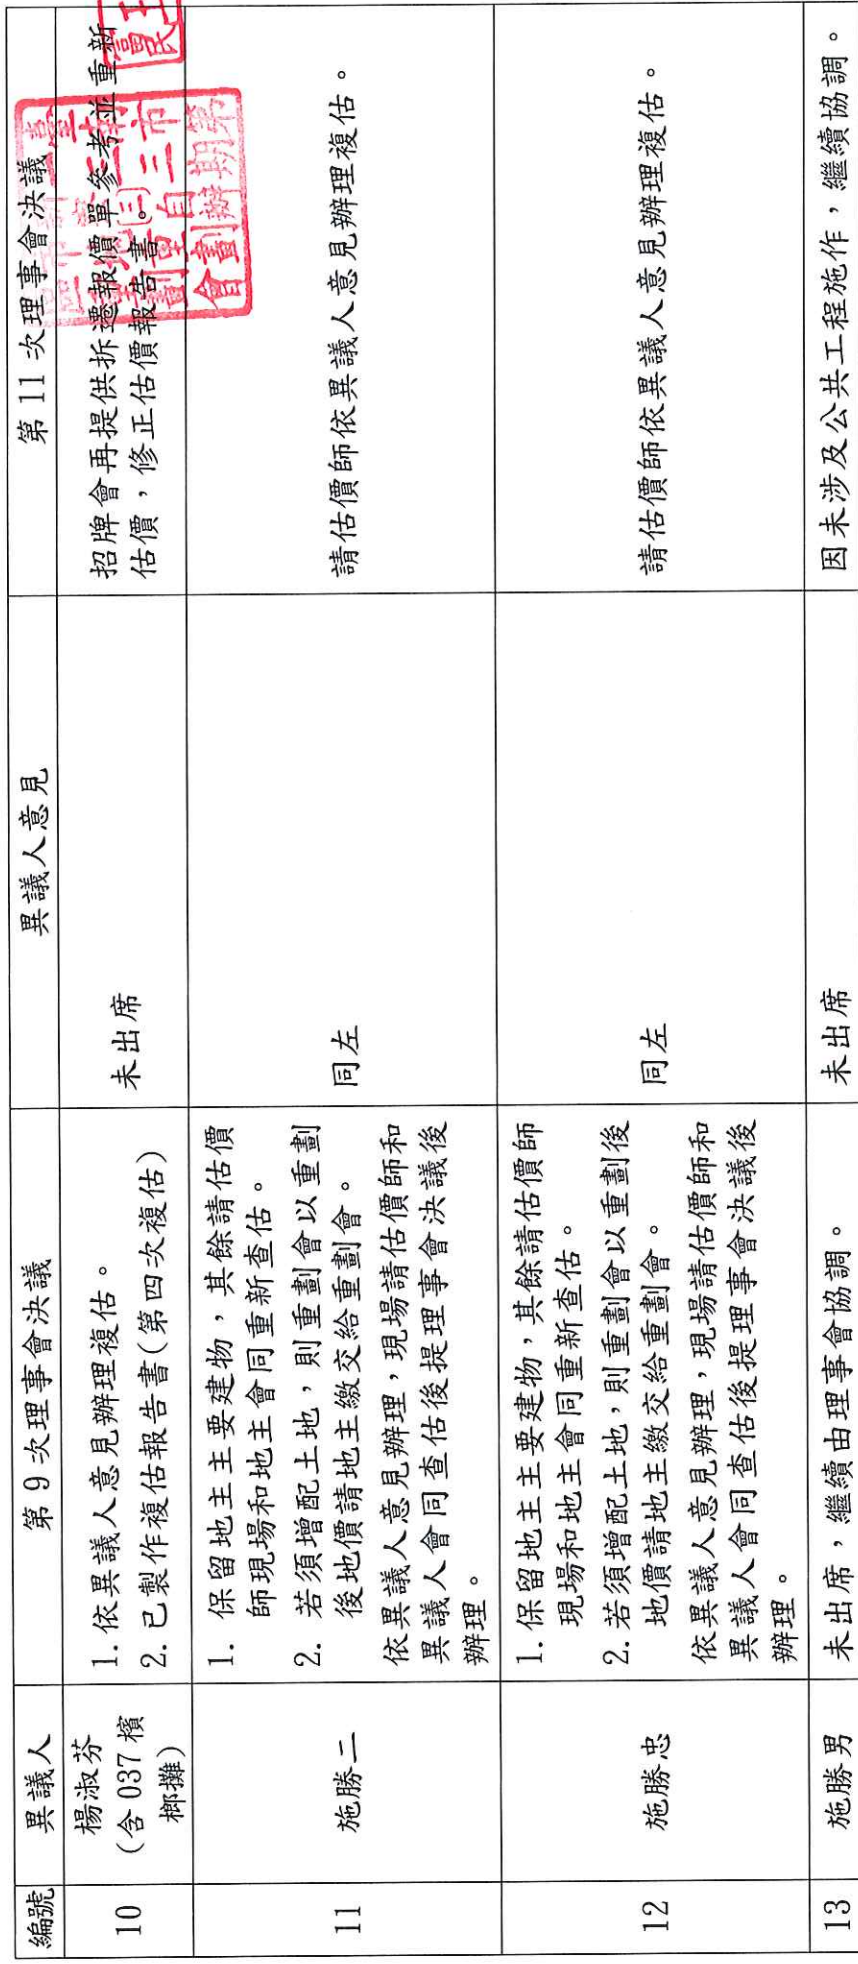 編號 異議人 第 9 次理事會決議 異議人意見 第 11 次理事會決議
10
楊淑芬
(含 037 檳
榔攤)
1.依異議人意見辦理複估。
2.已製作複估報告書(第四次複估)
未出席
招牌會再提供拆遷報價單參考並重新
估價，修正估價報告書。
11
施勝二
1. 保留地主主要建物，其餘請估價
師現場和地主會同重新查估。
2. 若須增配土地，則重劃會以重劃
後地價請地主繳交給重劃會。
依異議人意見辦理，現場請估價師和
異議人會同查估後提理事會決議後
辦理。
同左
請估價師依異議人意見辦理複估。
12
施勝忠
1.保留地主主要建物，其餘請估價師
現場和地主會同重新查估。
2.若須增配土地，則重劃會以重劃後
地價請地主繳交給重劃會。
依異議人意見辦理，現場請估價師和
異議人會同查估後提理事會決議後
辦理。
同左
請估價師依異議人意見辦理複估。
13
施勝男
未出席，繼續由理事會協調。
未出席
因未涉及公共工程施作，繼續協調。